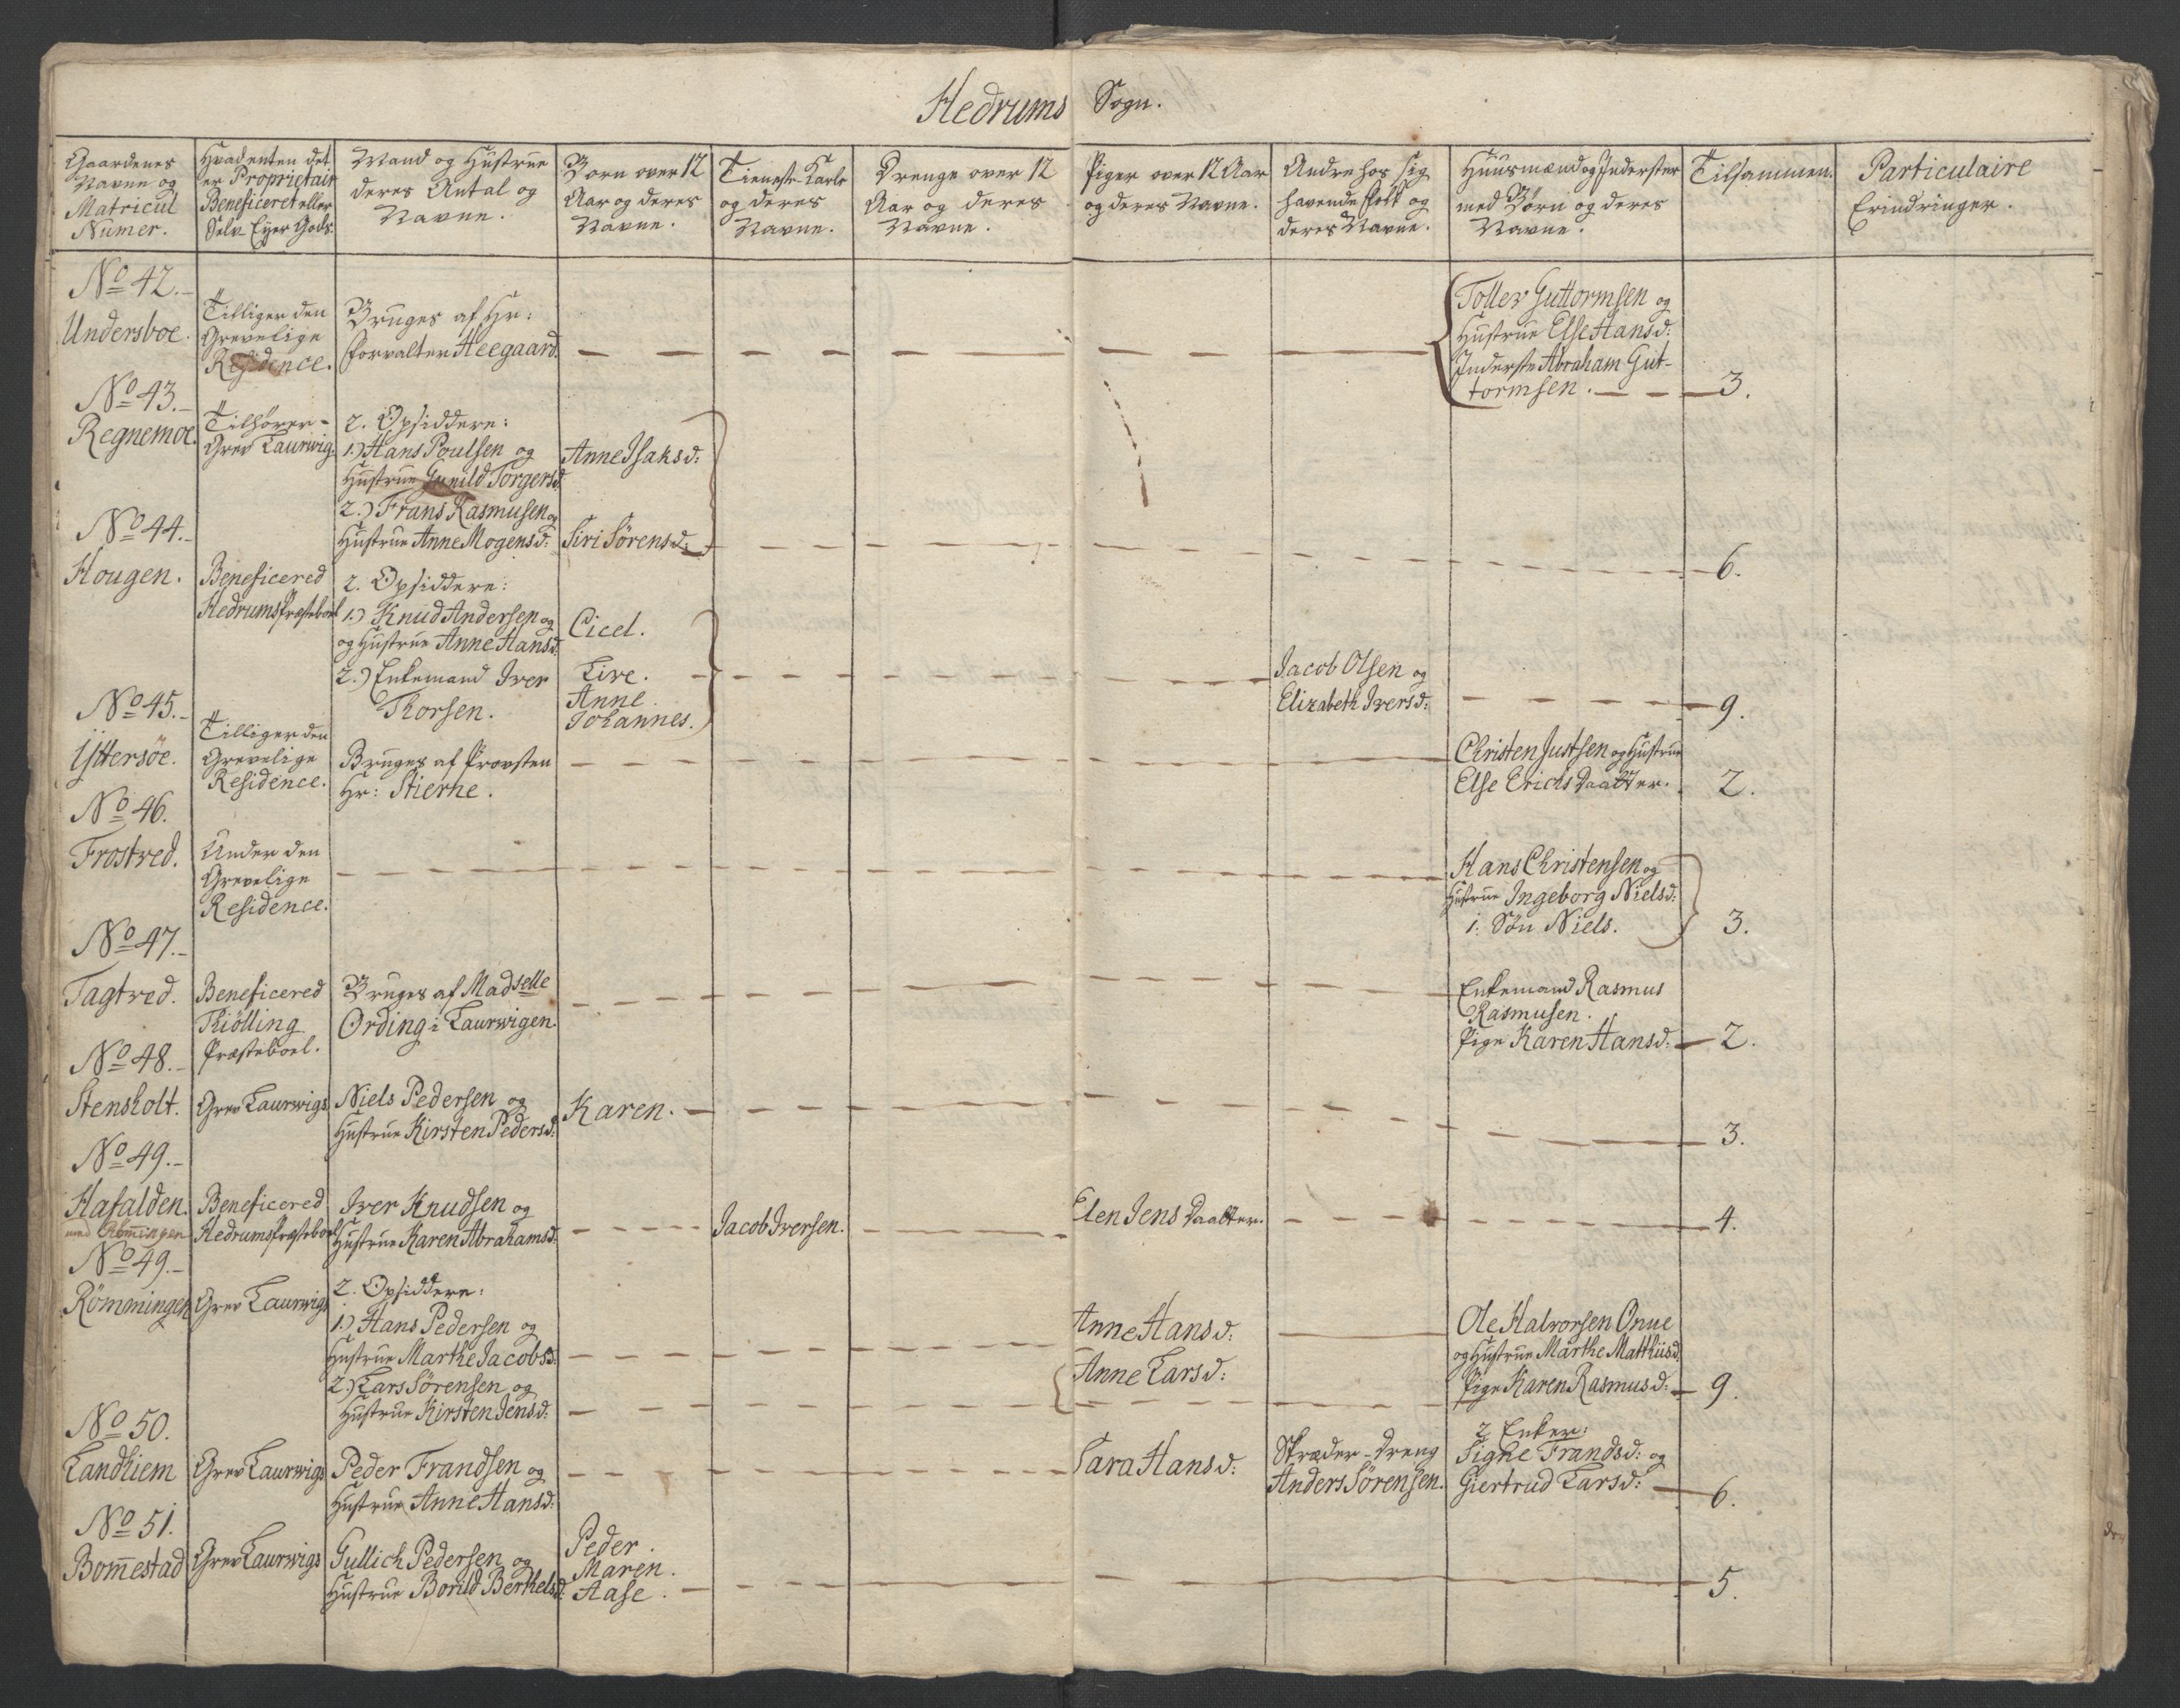 Hedrums Sogn.
Gaardenes
Navne og
Matricul
Numer.
Hvadenten det
er Proprietair
Beneficeret eller
Selv Eyer Gods.
Mand og Hustrue
deres Antal og
Navne.
Børn over 12
Aar og deres
Navne.
Tieneste Karle
og deres
Navne.
Drenge over 12
Aar og deres
Navne.
Piger over 12 Aar
og deres Navne.
Andre hos sig
havende Folk og
deres Navne.
Huusmænd og Inderster
med Børn og deres
Navne.
Tilsammen.
Particulaire
Erindringer.
No 42.
Undersboe.
Tilliger den
Grevelige
Residence.
Bruges af Hr:
Forvalter Heegaard.
Toller Guttormsen og
Hustrue Else Hansd:
Inderste Abraham Gut-
tormsen.
3.
No 43.
Regnemoe.
Tilhører
Grev Laurwig.
2. Opsiddere:
1.) Hans Poulsen og
Hustrue Gunild Torgersd.
2.) Frans Rasmusen og
Hustrue Anne Mogensd:
Anne Isaksd:
Siri Sørensd:
6.
No 44.
Hougen.
Beneficered
Hedrums Præsteboel
2. Opsiddere:
1.) Knud Andersen og
og Hustrue Anne Hansd.
2.) Enkemand Iver
Thorsen.
Cicel.
Live.
Anne.
Johannes.
Jacob Olsen og
Elizabeth Iversd:
9.
No 45.
Ÿttersöe.
Tilliger den
Grevelige
Residence.
Bruges af Provsten
Hr: Stierne.
Christen Justsen og Hustrue
Else Erichs Daatter.
2.
No 46.
Frostred.
Under den
Grevelige
Residence.
Hans Christensen og
Hustrue Ingeborg Nielsd:
1. Søn Niels.
3.
No 47.
Tagtred.
Beneficered
Thiölling
Præsteboel.
Bruges af Madselle
Ording i Laurwigen.
Enkemand Rasmus
Rasmusen.
Pige Karen Hansd:
2.
No 48.
Stensholt.
Grev Laurwigs
Niels Pedersen og
Hustrue Kirsten Pedersd:
Karen.
3.
No 49.
Hafalden.
med Rømingen
Beneficered
Hedrums Præsteboel
Iver Knudsen og
Hustrue Karen Abrahamsd:
Jacob Iversen.
Elen Jens Daatter.
4.
No 49.
Römmingen
Grev Laurwigs
2. Opsiddere:
1.) Hans Pedersen og
Hustrue Marthe Jacobsd:
2.) Lars Sörensen og
Hustrue Kirsten Jensd:
Anne Hansd:
Anne Larsd:
Ole Halvorsen Onue
og Hustrue Marthe Matthiisd.
Pige Karen Rasmusd:
9.
No 50.
Landhiem
Grev Laurwigs
Peder Frandsen og
Hustrue Anne Hansd:
Sara Hansd:
Skræder-Dreng
Anders Sörensen.
2 Enker:
Signe Frandsd: og
Giertrud Larsd:
6.
No 51.
Bom̄estad
Grev Laurwigs
Gullich Pedersen og
Hustrue Borild Berthelsd:
Peder.
Maren.
Aase.
5.